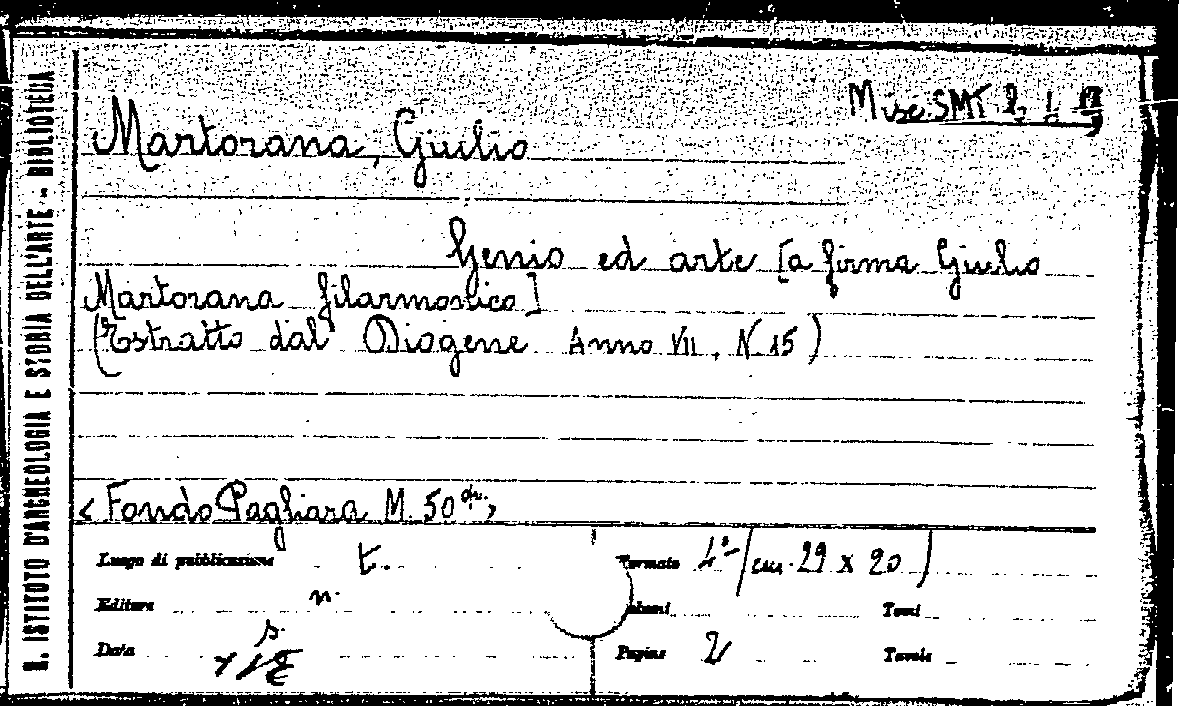 R. ISTITUTO D'ARCHEOLOGIA E STORIA DELL'ARTE - BIBLIOTECA
Misc. SMT
Martorana, Giulio
Genio ed arte [a firma Giulio
Martorana filarmonico]
(Estratto dal Diogene Anno VII, N. 15)
< Fondo Pagliara M. 50
Luogo di pubblicazione t. Formato 4° (cm. 29 x 20)
Editore n. Volumi Tomi
Data s. Pagine 2 Tavole